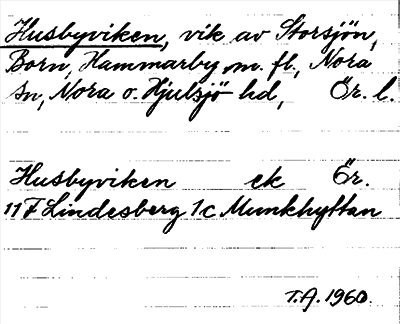 Husbyviken, vik av Storsjön,
Born, Hammarby m. fl., Nora
sn, Nora o. Hjulsjö hd, Ör. l.
Husbyviken ek Ör.
11F Lindesberg 1c Munkhyttan
T.A. 1960.